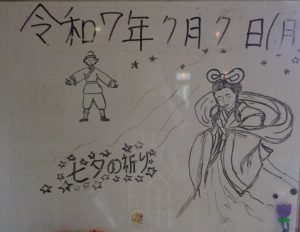 令和7年7月7日(月
七夕の祈り